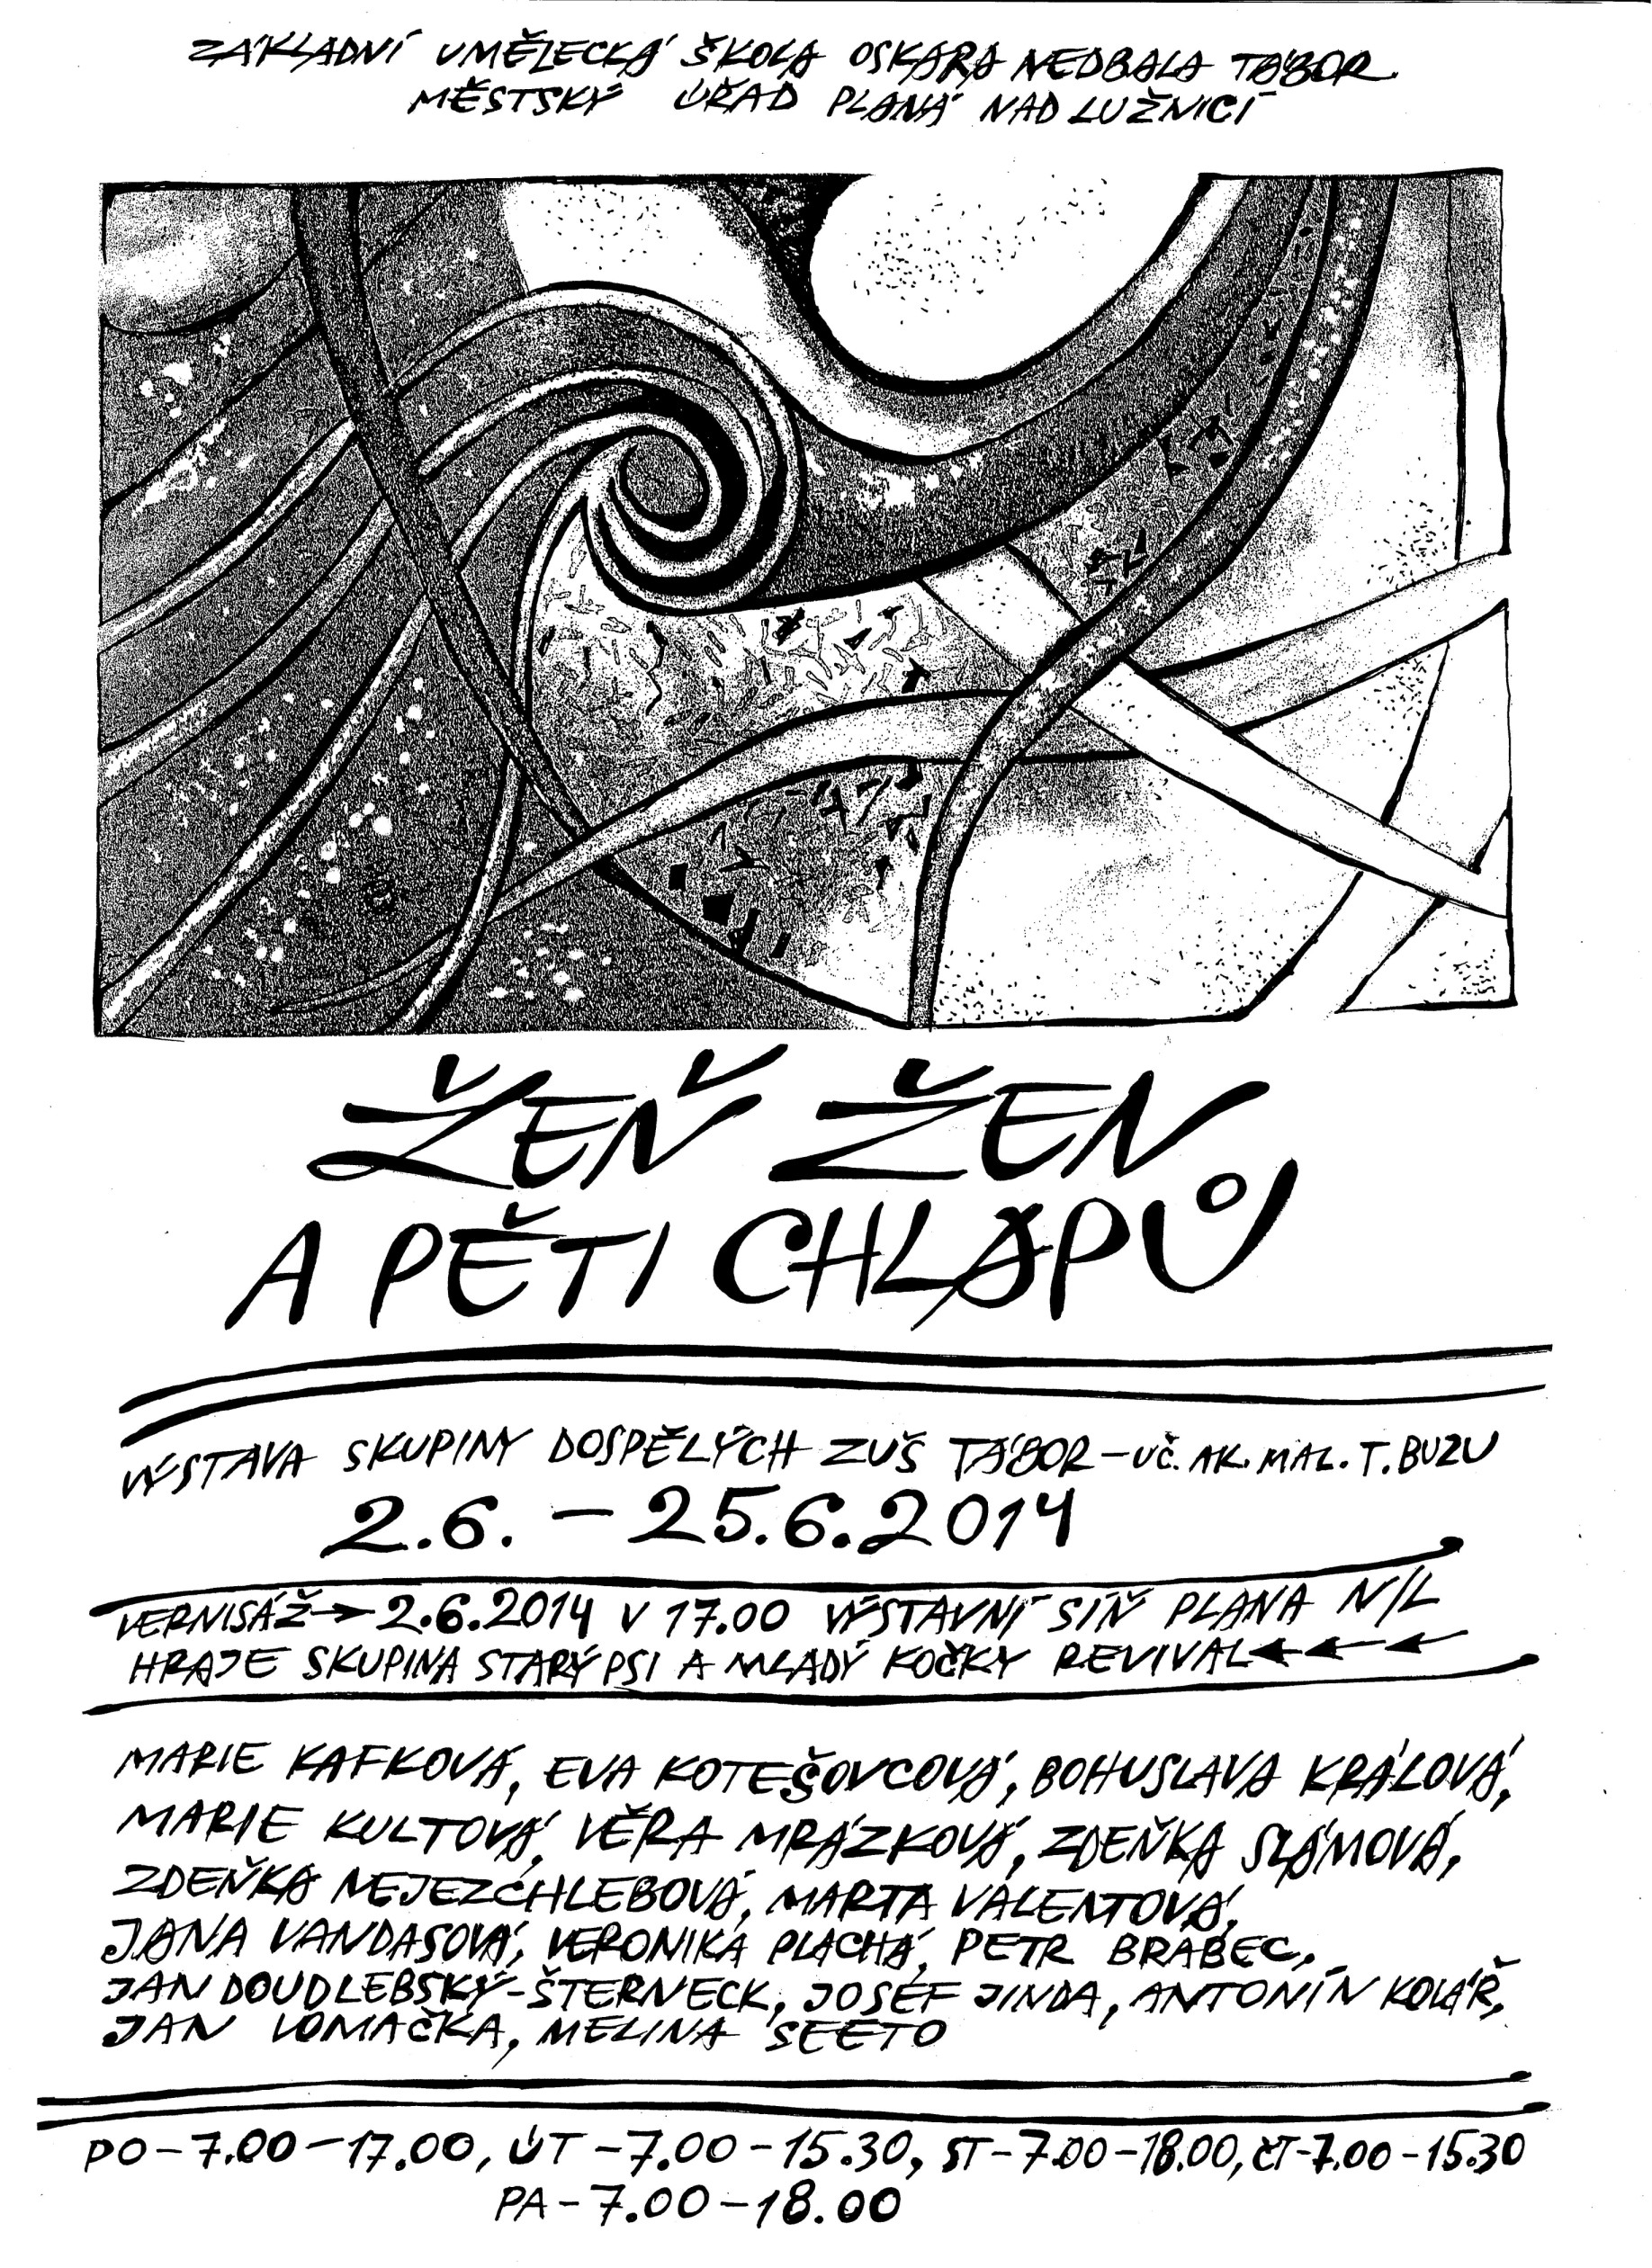 ZÁKLADNÍ UMĚLECKÁ ŠKOLA OSKARA NEDBALA TÁBOR
MĚSTSKÝ ÚŘAD PLANÁ NAD LUŽNICÍ
ŽEŇ ŽEN
A PĚTI CHLAPŮ
VÝSTAVA SKUPINY DOSPĚLÝCH ZUŠ TÁBOR – UČ. AK. MAL. T. BUZU
2.6. – 25.6.2014
VERNISÁŽ → 2.6.2014 V 17.00 VÝSTAVNÍ SÍŇ PLANA N/L
HRAJE SKUPINA STARÝ PSI A MLADÝ KOČKY REVIVAL ← ← ←
MARIE KAFKOVÁ, EVA KOTEŠOVCOVÁ, BOHUSLAVA KRÁLOVÁ,
MARIE KULTOVÁ, VĚRA MRÁZKOVÁ, ZDEŇKA SLÁMOVÁ,
ZDEŇKA NEJEZCHLEBOVÁ, MARTA VALENTOVÁ,
JANA VANDASOVÁ, VERONIKA PLACHÁ, PETR BRABEC,
JAN DOUDLEBSKÝ-ŠTERNECK, JOSEF JINDA, ANTONÍN KOLÁŘ,
JAN LOMAČKA, MELINA SEETO
PO – 7.00 – 17.00, ÚT – 7.00 – 15.30, ST – 7.00 – 18.00, ČT – 7.00 – 15.30
PA – 7.00 – 18.00